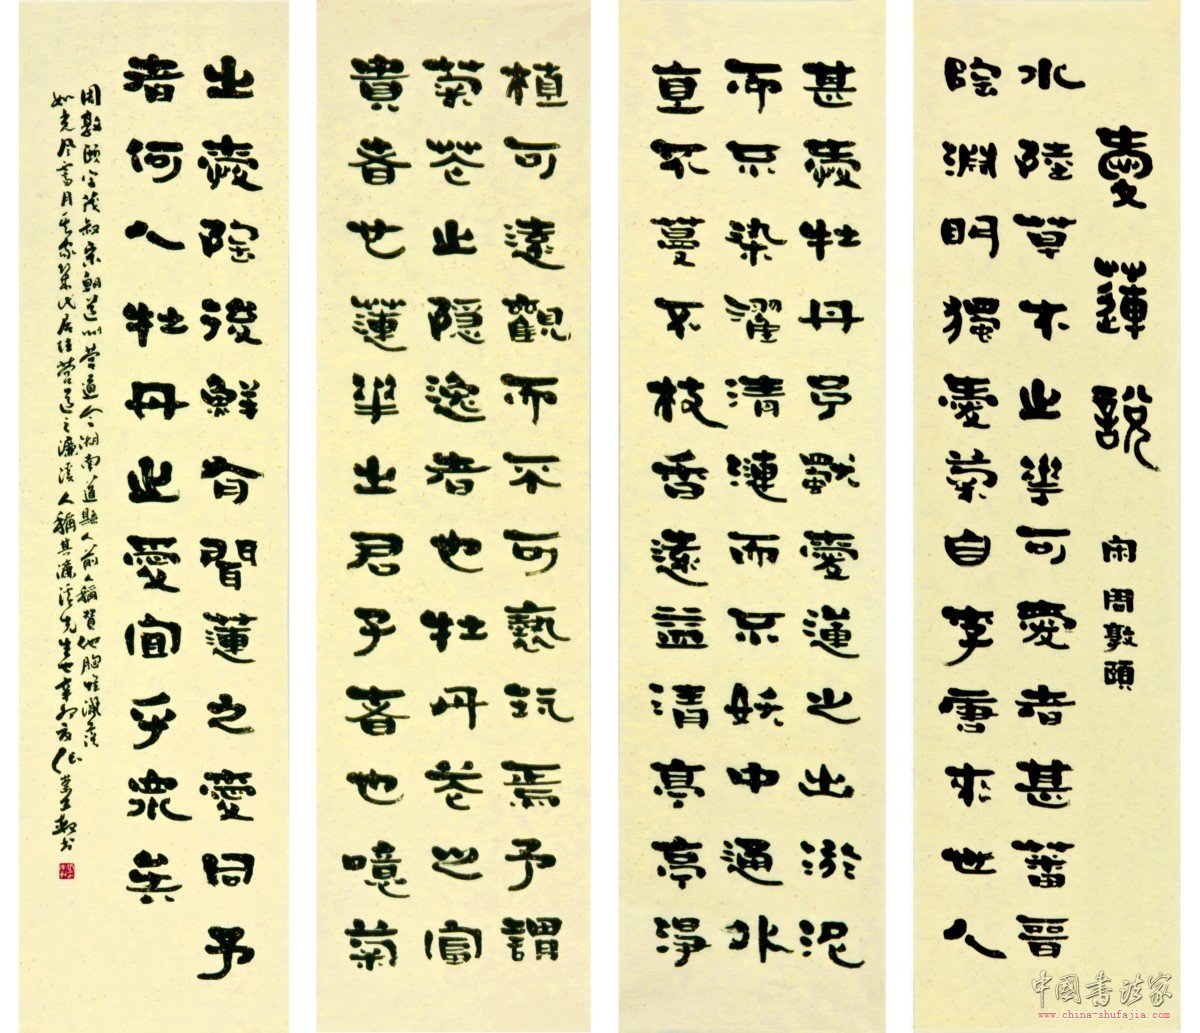 愛蓮說 宋周敦頤
水陸草木之華可愛者甚蕃晉
陶淵明獨愛菊自李唐來世人
甚愛牡丹予獨愛蓮之出淤泥
而不染濯清漣而不妖中通外
直不蔓不枝香遠益清亭亭淨
植可遠觀而不可褻玩焉予謂
菊花之隱逸者也牡丹花之富
貴者也蓮華之君子者也噫菊
之愛陶後鮮有聞蓮之愛同予
者何人牡丹之愛宜乎眾矣
周敦頤字茂叔宋朝道州營道今湖南道縣人前人稱贊他胸懷灑落
如光風霽月其家世代居住營道之濂溪人稱其濂溪先生也辛卯夏
中国书法家
www.china-shufajia.com